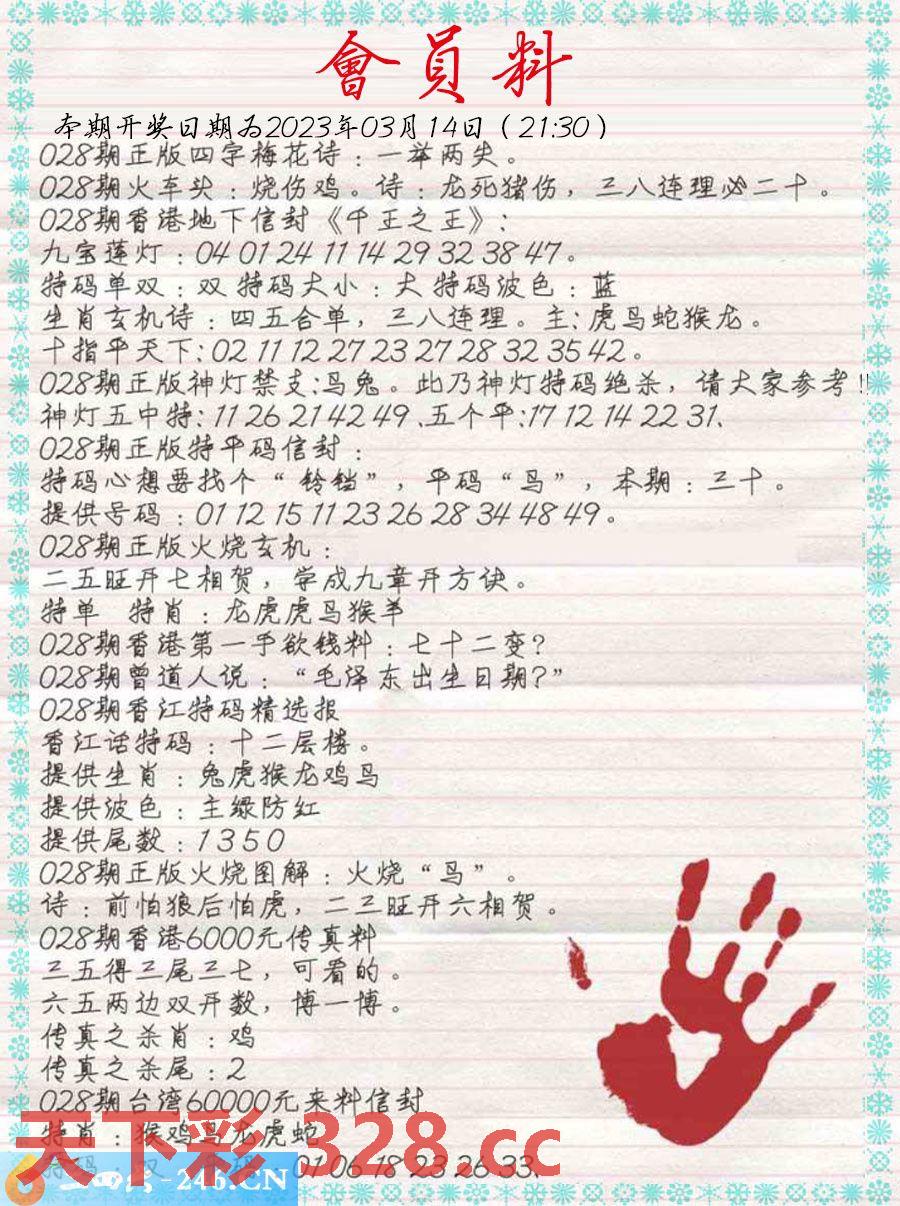 會員料
本期开奖日期为2023年03月14日（21:30）
028期正版四字梅花诗：一举两失。
028期火车头：烧伤鸡。诗：龙死猪伤，三八连理必二十。
028期香港地下信封《千王之王》：
九宝莲灯：04 01 24 11 14 29 32 38 47。
特码单双：双 特码大小：大 特码波色：蓝
生肖玄机诗：四五合单，三八连理。主：虎鸟蛇猴龙。
十指平天下：02 11 12 27 23 27 28 32 35 42。
028期正版神灯禁支:鸟兔。此乃神灯特码绝杀，请大家参考!!
神灯五中特：11 26 21 42 49 、五个平:17 12 14 22 31、
028期正版特平码信封：
特码心想要找个“铃铛”，平码“鸟”，本期：三十。
提供号码：01 12 15 11 23 26 28 34 48 49。
028期正版火烧玄机：
二五旺开七相贺，学成九章开方诀。
特单 特肖：龙虎虎鸟猴羊
028期香港第一手欲钱料：七十二变?
028期曾道人说：“毛泽东出生日期?”
028期香江特码精选报
香江话特码：十二层楼。
提供生肖：兔虎猴龙鸡鸟
提供波色：主绿防红
提供尾数：1 3 5 0
028期正版火烧图解：火烧“鸟”。
诗：前怕狼后怕虎，二三旺开六相贺。
028期香港6000元传真料
三五得三尾三七，可看的。
六五两边双开数，博一博。
传真之杀肖：鸡
传真之杀尾：2
028期台湾60000元来料信封
特肖：猴鸡鸟龙虎蛇
天下彩 328.cc
特码：双 01 06 18 23 26 33、
-246.CN